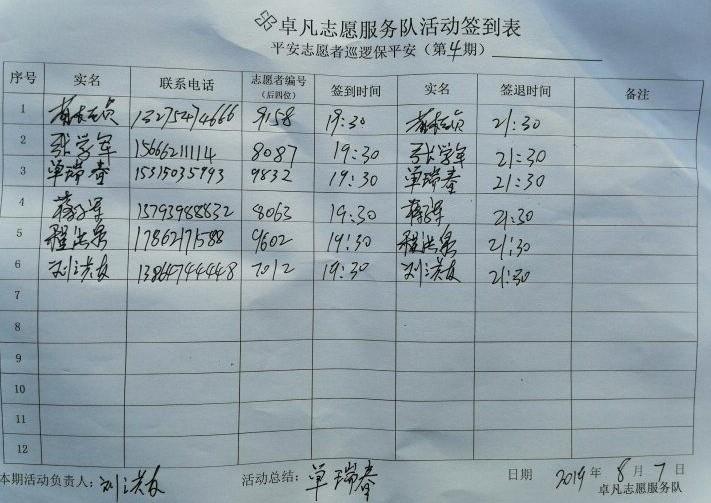 卓凡志愿服务队活动签到表
平安志愿者巡逻保平安（第4期）
序号 实名 联系电话 志愿者编号（后四位） 签到时间 实名 签退时间 备注
1 13275474666 9158 19:30 21:30
2 张学军 15666211114 8087 19:30 张学军 21:30
3 单瑞春 15315035993 9832 19:30 单瑞春 21:30
4 15793988832 8063 19:30 21:30
5 程洪泉 17862171588 9602 19:30 程洪泉 21:30
6 刘洪友 13864744448 7012 19:30 刘洪友 21:30
7
8
9
10
11
12
本期活动负责人：刘洪友 活动总结：单瑞春 日期 2019年8月7日
卓凡志愿服务队